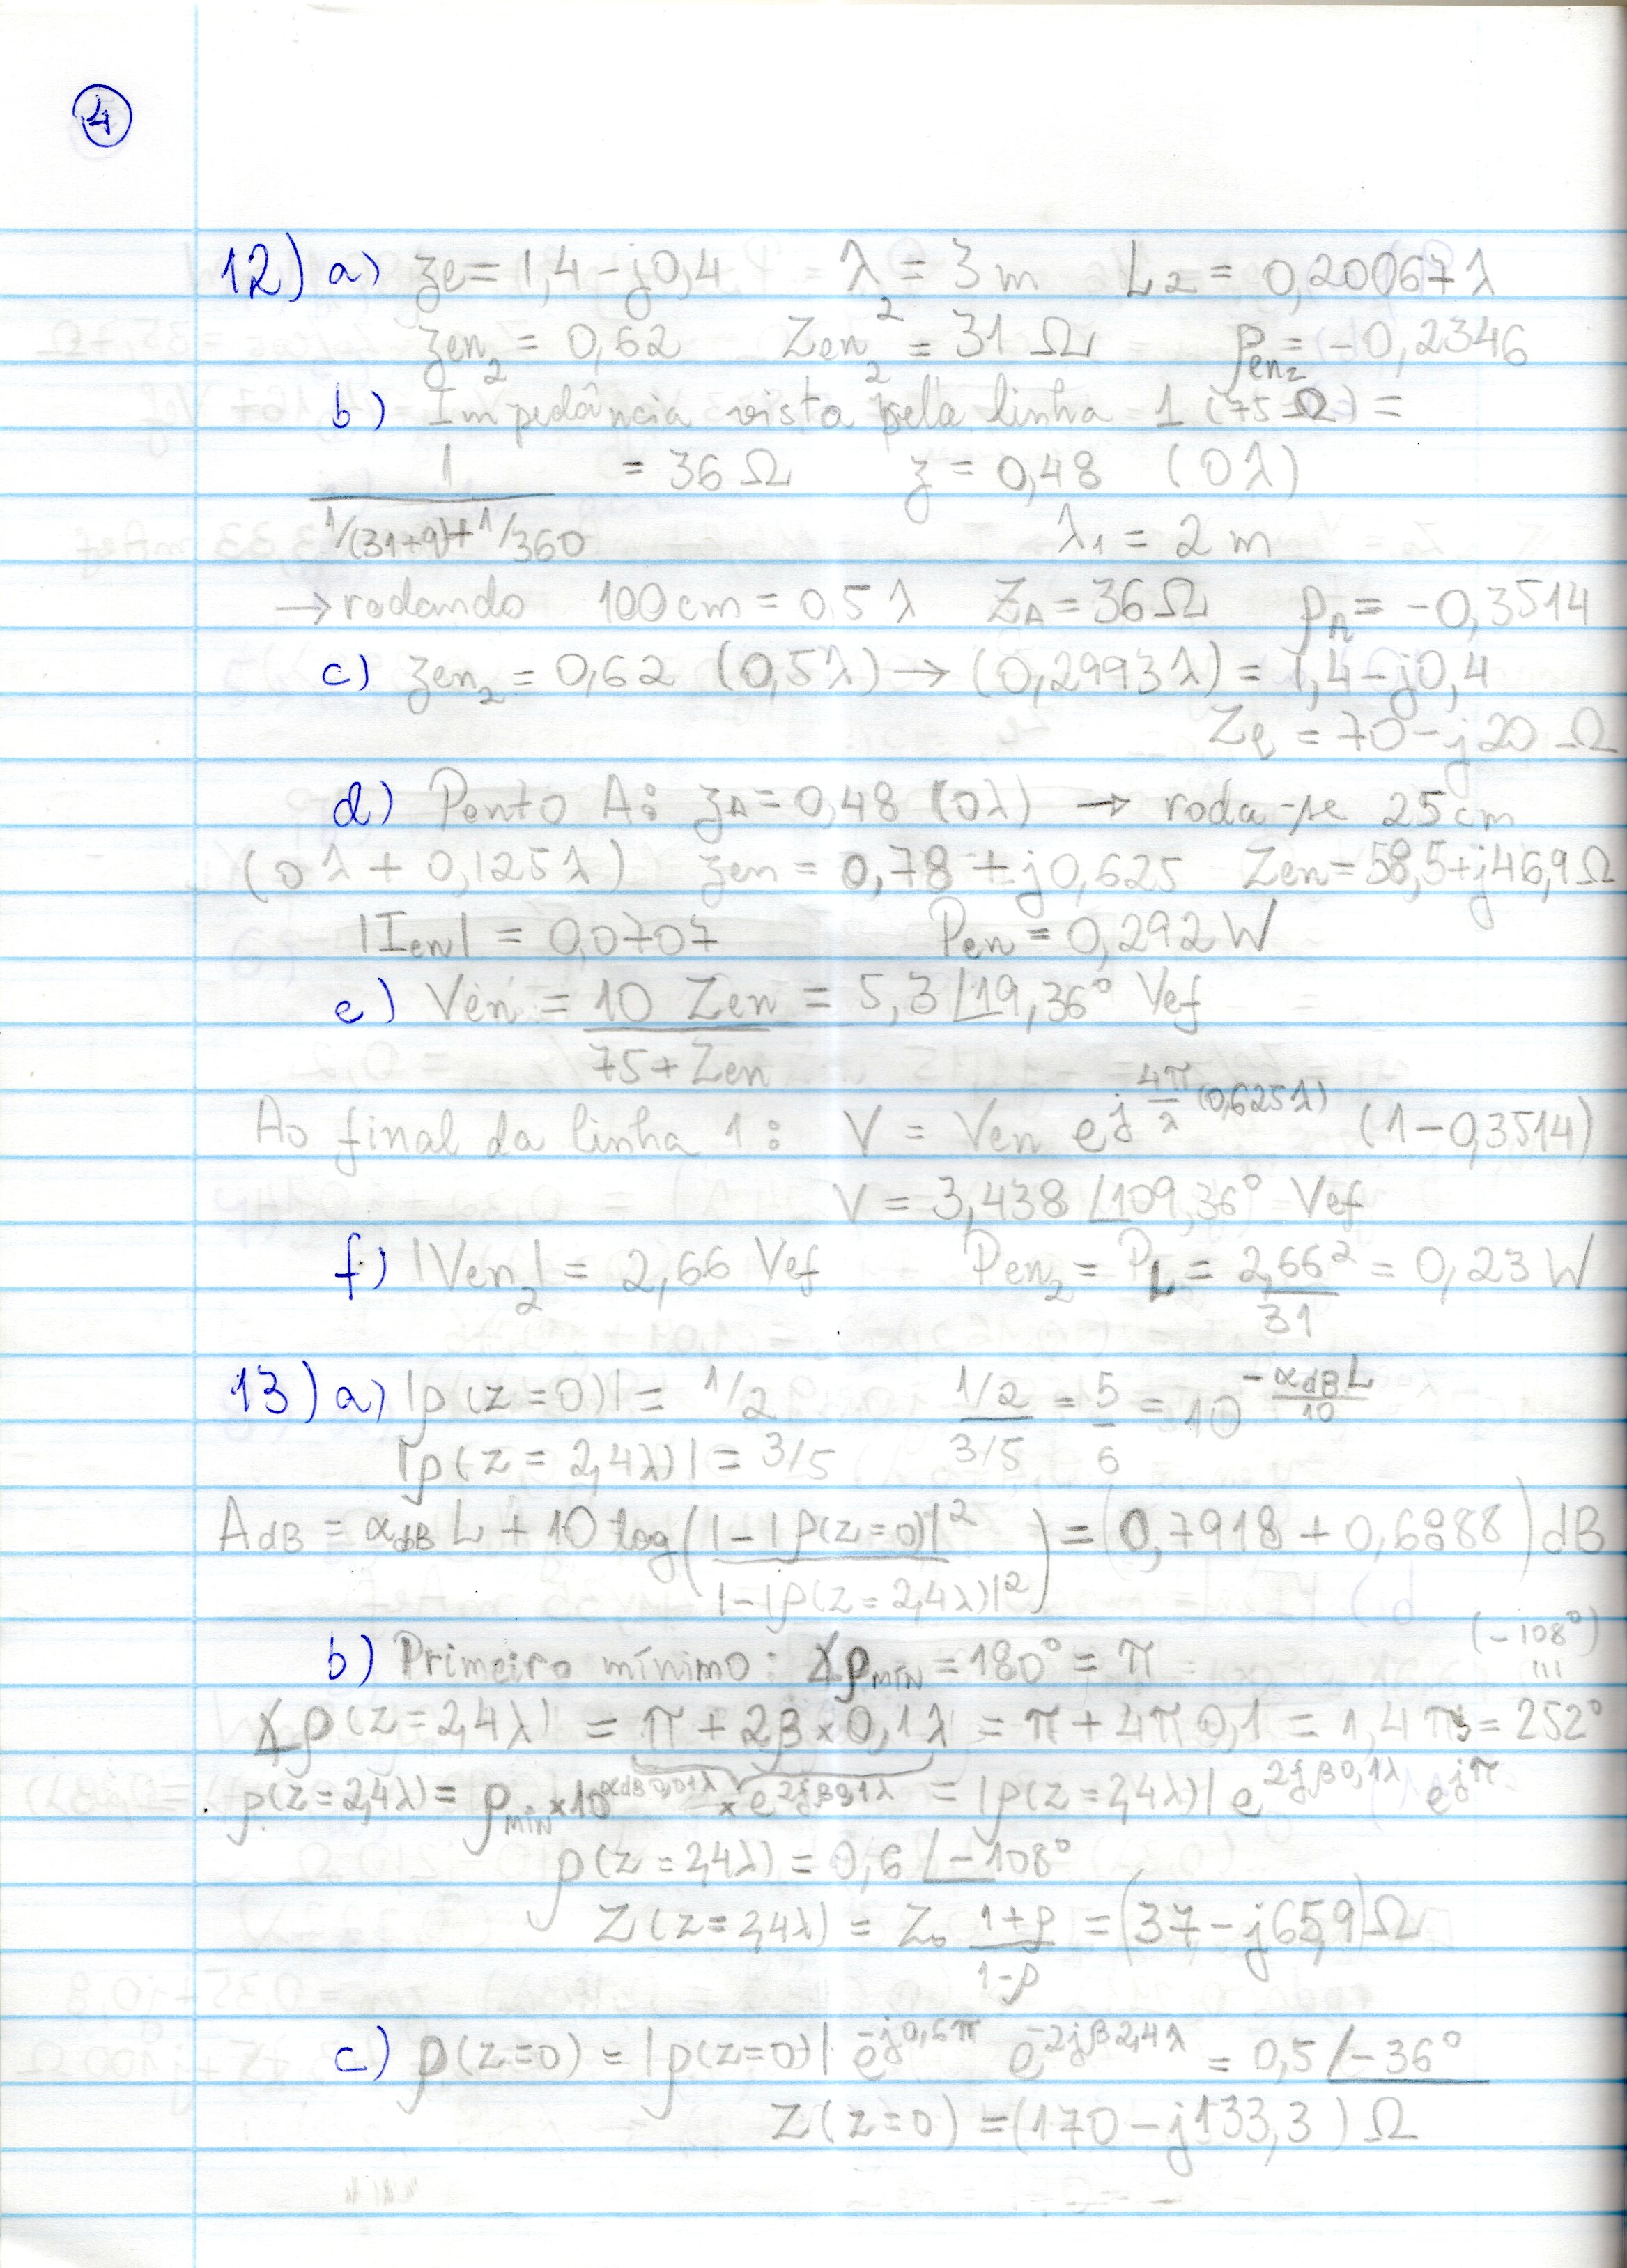 4
12) a) ze = 1,4 - j0,4 λ2 = 3 m L2 = 0,20067 λ
zen2 = 0,62 Zen2 = 31 Ω ρen2 = -0,2346
b) Impedância vista pela linha 1 (75 Ω) =
1 / (1/(31+9) + 1/360) = 36 Ω z = 0,48 (0λ)
λ1 = 2 m
→ rodando 100 cm = 0,5 λ ZA = 36 Ω ρA = -0,3514
c) zen2 = 0,62 (0,5λ) → (0,2993λ) = 1,4 - j0,4
Zl = 70 - j20 Ω
d) Ponto A: zA = 0,48 (0λ) → roda-se 25 cm
(0 λ + 0,125 λ) zen = 0,78 + j0,625 Zen = 58,5 + j46,9 Ω
|Ien| = 0,0707 Pen = 0,292 W
e) Ven = 10 Zen / (75 + Zen) = 5,3 ∠19,36° Vef
Ao final da linha 1: V = Ven e^(j 4π/λ (0,625λ)) (1 - 0,3514)
V = 3,438 ∠109,36° Vef
f) |Ven2| = 2,66 Vef Pen2 = PL = 2,66² / 31 = 0,23 W
13) a) |ρ(z=0)| = 1/2 (1/2) / (3/5) = 5/6 = 10^(-αdB L / 10)
|ρ(z = 2,4λ)| = 3/5
AdB = αdB L + 10 log( (1 - |ρ(z=0)|²) / (1 - |ρ(z=2,4λ)|²) ) = (0,7918 + 0,6888) dB
b) Primeiro mínimo: ∡ρMIN = 180° = π (-108°)
∡ρ(z=2,4λ) = π + 2β × 0,1λ = π + 4π 0,1 = 1,4 π = 252°
ρ(z=2,4λ) = ρMIN × 10^(αdB 0,01λ) × e^(2jβ0,1λ) = |ρ(z=2,4λ)| e^(2jβ0,1λ) e^(jπ)
ρ(z=2,4λ) = 0,6 ∠-108°
Z(z=2,4λ) = Z0 (1+ρ) / (1-ρ) = (37 - j65,9) Ω
c) ρ(z=0) = |ρ(z=0)| e^(-j0,6π) e^(-2jβ2,4λ) = 0,5 ∠-36°
Z(z=0) = (170 - j133,3) Ω